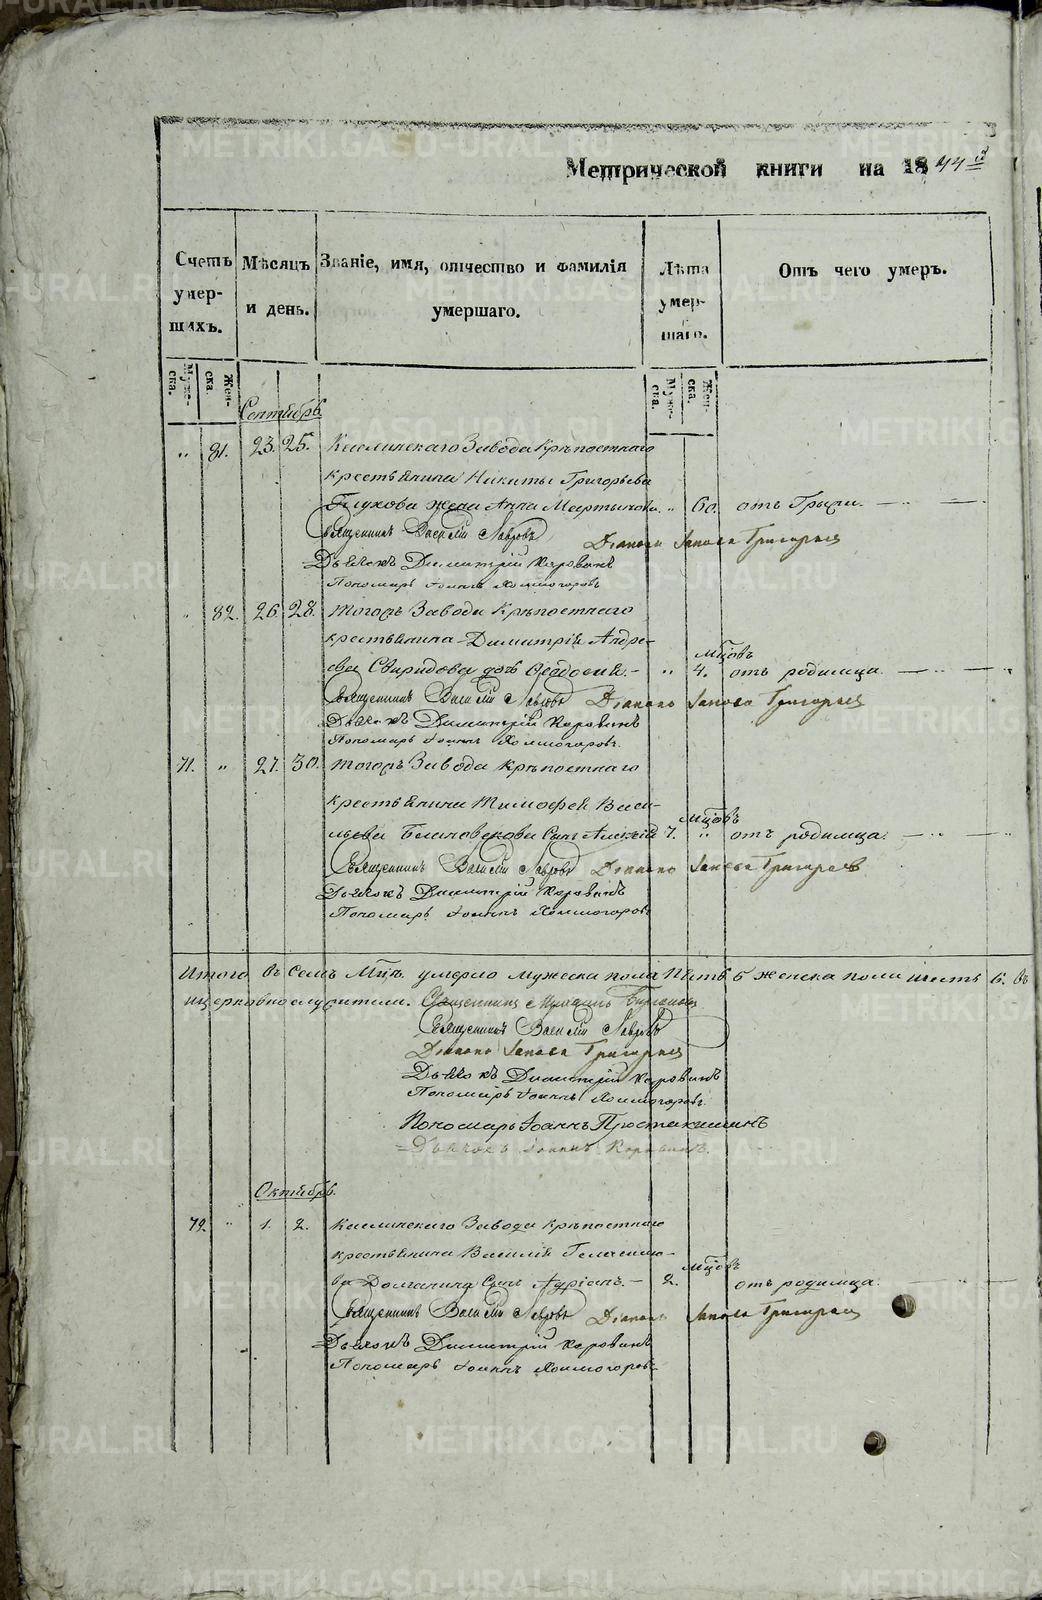 Метрической книги на 1844й
Счетъ умершихъ.
Мѣсяцъ и день.
Званіе, имя, отчество и фамилія умершаго.
Лѣта умершаго.
Отъ чего умеръ.
Муже-ска.
Жен-ска.
Муже-ска.
Жен-ска.
Сентябрь
" 81. 23. 25. Каслинскаго Завода Крѣпостнаго
крестьянина Никиты Григорьева
Глухова жена Анна Мартынова. " 60. отъ Грыжи.
Священникъ Василій Лавровъ Діаконъ Іаковъ Григорьевъ
Дьячокъ Димитрій Коровинъ
Пономарь Іоаннъ Холмогоровъ
" 82. 26. 28. Тогожъ Завода Крѣпостнаго
крестьянина Димитрія Андре-
ева Свиридова дочь Ѳеодосія. " мцовъ 4. отъ родимца.
Священникъ Василій Лавровъ Діаконъ Іаковъ Григорьевъ
Дьячокъ Димитрій Коровинъ
Пономарь Іоаннъ Холмогоровъ.
71. " 27. 30. Тогожъ Завода Крѣпостнаго
крестьянина Тимофея Васи-
льева сынъ Алексій 7. мцовъ " отъ родимца.
Священникъ Василій Лавровъ Діаконъ Іаковъ Григорьевъ
Дьячокъ Димитрій Коровинъ
Пономарь Іоаннъ Холмогоровъ
Итого въ семъ Мцѣ умерло мужеска пола Пять 5 женска пола шесть 6.
Священникъ
Священникъ Василій Лавровъ
Діаконъ Іаковъ Григорьевъ
Дьячокъ Димитрій Коровинъ
Пономарь Іоаннъ Холмогоровъ.
Пономарь Іоаннъ
Дьячокъ Іоаннъ Коровинъ.
Октябрь.
72. " 1. 2. Каслинскаго Завода крѣпостнаго
крестьянина Василія Галасимо-
ва Долганина Сынъ Адріанъ. 2. мцовъ отъ родимца.
Священникъ Василій Лавровъ Діаконъ Іаковъ Григорьевъ
Дьячокъ Димитрій Коровинъ
Пономарь Іоаннъ Холмогоровъ
METRIKI.GASO-URAL.RU